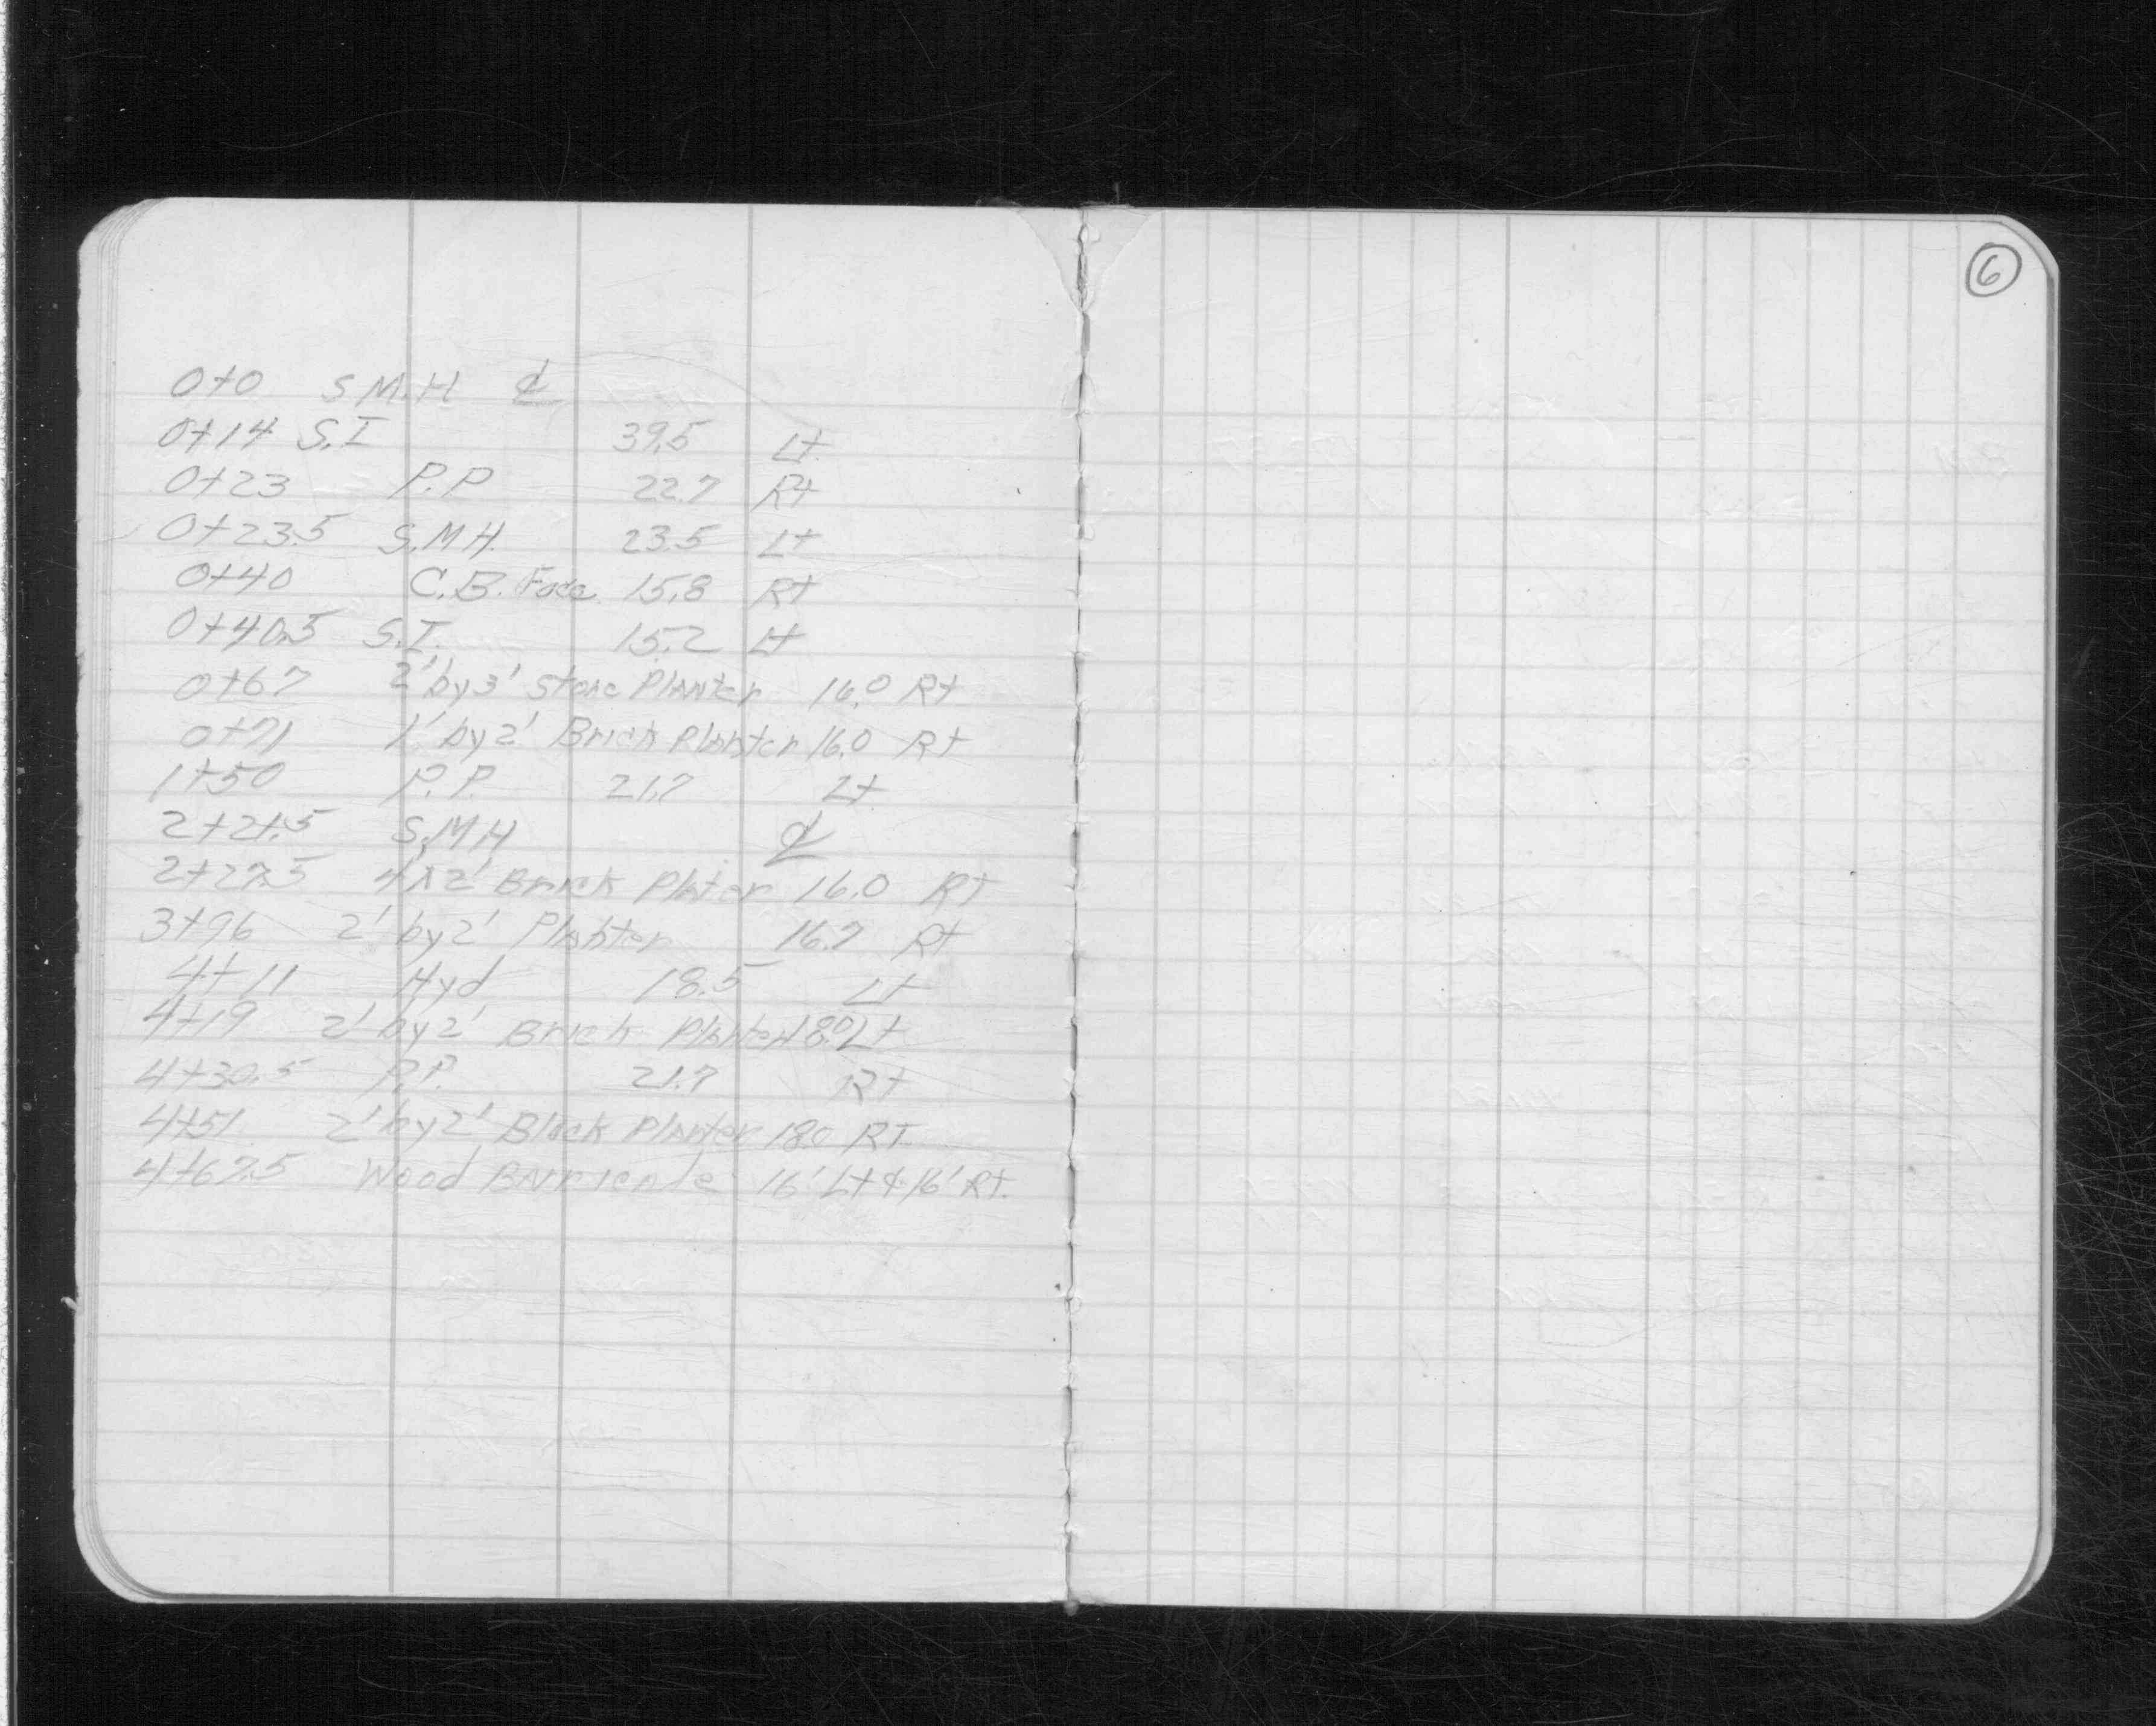 6
0+0 S.M.H ℄
0+14 S.I 39.5 Lt
0+23 P.P 22.7 Rt
0+23.5 S.M.H. 23.5 Lt
0+40 C.B. Face 15.8 Rt
0+40.5 S.I. 15.2 Lt
0+67 2' by 3' Stone Planter 16.0 Rt
0+71 1' by 2' Brick Planter 16.0 Rt
1+50 P.P. 21.7 Lt
2+21.5 S.M.H ℄
2+27.5 4'x2' Brick Plnter 16.0 Rt
3+96 2' by 2' Planter 16.7 Rt
4+11 Hyd 18.5 Lt
4+19 2' by 2' Brick Planter 18.0 Lt
4+30.5 P.P. 21.7 Rt
4+51 2' by 2' Block Planter 18.0 Rt
4+67.5 Wood Barricade 16' Lt & 16' Rt.